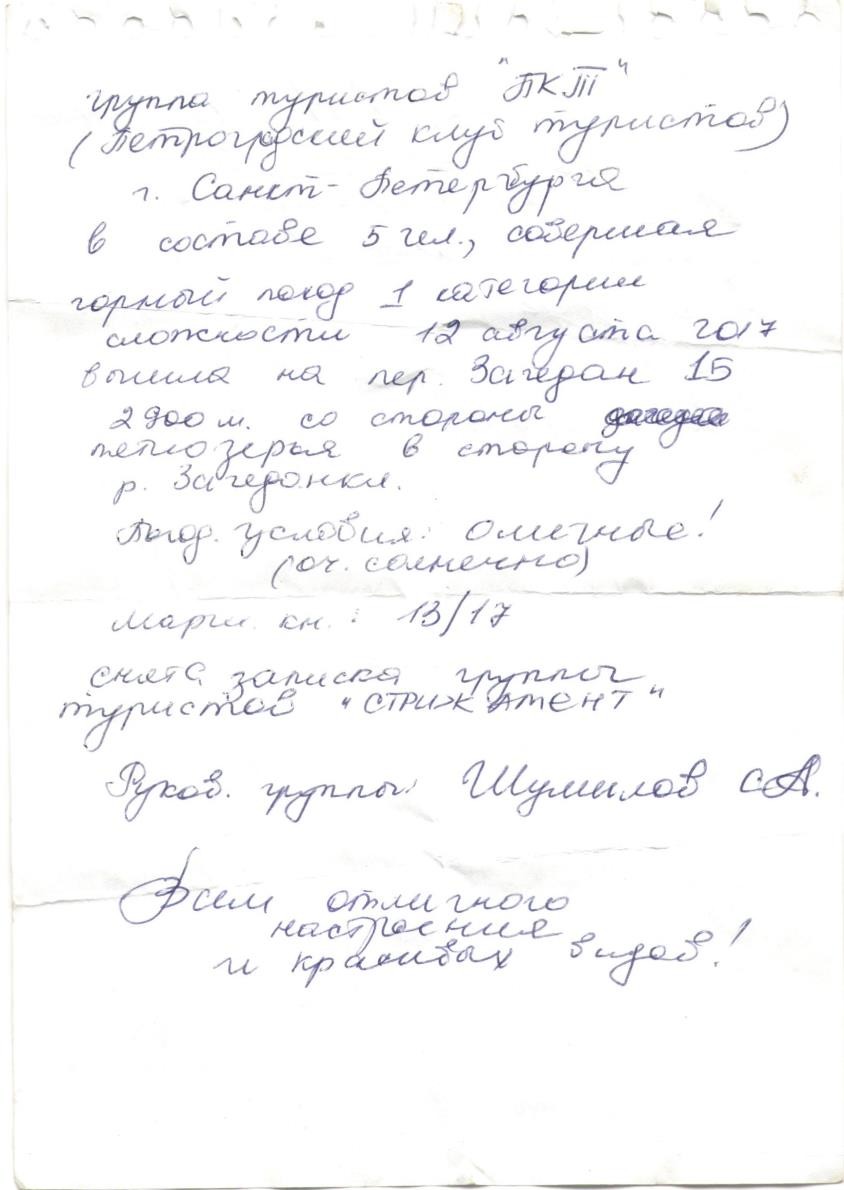 группа туристов "ПКТ"
(Петроградский клуб туристов)
г. Санкт-Петербурга
в составе 5 чел., совершая
горный поход 1 категории
сложности 12 августа 2017
вышла на пер. Загедан 1Б
2900 м. со стороны
пятиозерья в сторону
р. Загеданка.
Погод. условия: Отличные!
(оч. солнечно)
Марш. кн.: 13/17
снята записка группы
туристов "СТРИЖАМЕНТ"
Руков. группы: Шумилов С.А.
Всем отличного
настроения
и красивых видов!